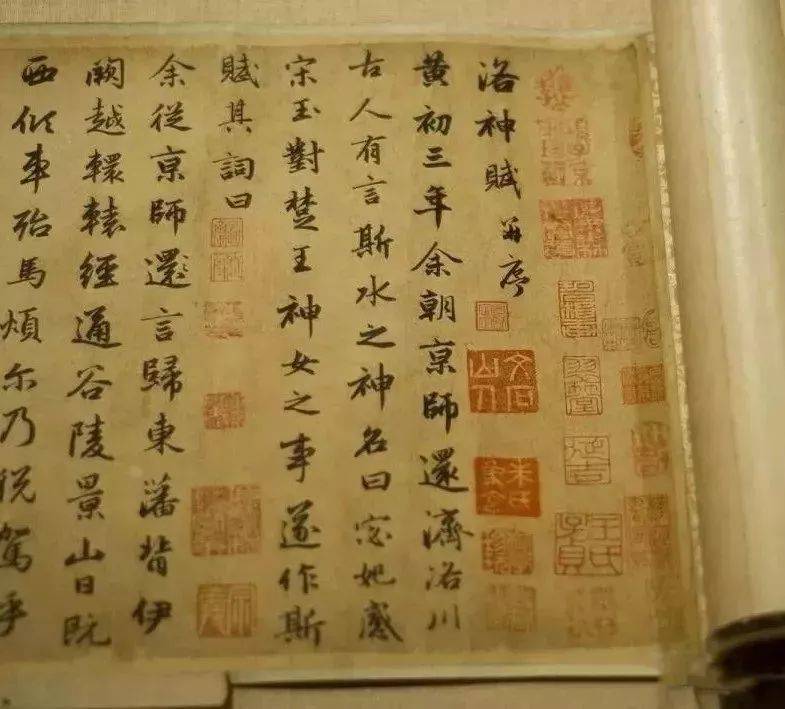 洛神賦 并序
黃初三年余朝京師還濟洛川
古人有言斯水之神名曰宓妃感
宋玉對楚王神女之事遂作斯
賦其詞曰
余從京師還言歸東藩背伊
闕越轘轅經通谷陵景山日既
西傾車殆馬煩尔乃稅駕乎